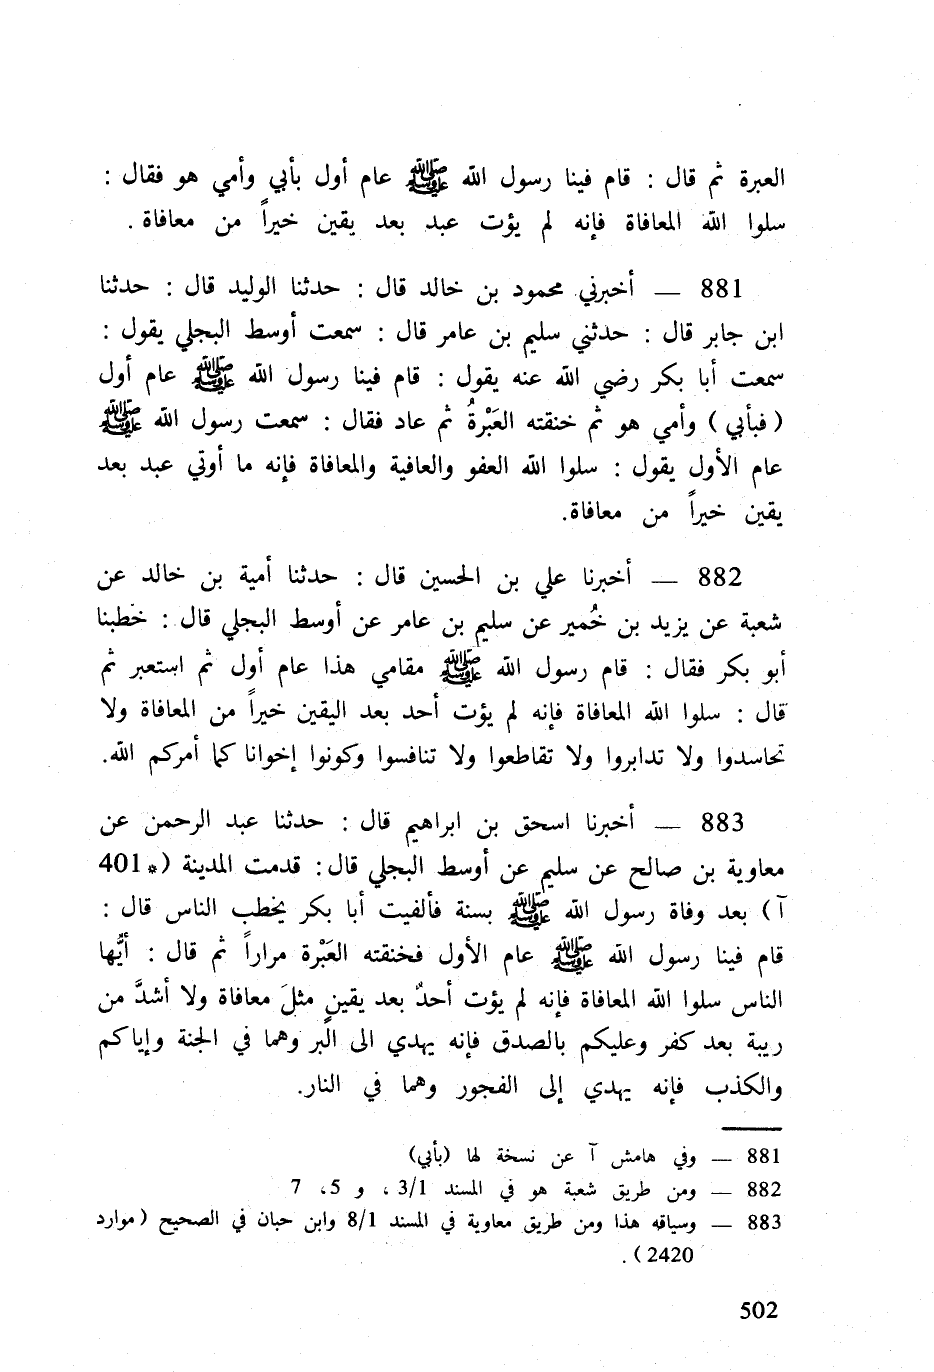 العبرة ثم قال : قام فينا رسول الله ﷺ عام أول بأبي وأمي هو فقال :
سلوا الله المعافاة فإنه لم يؤت عبد بعد يقين خيراً من معافاة .
881 — أخبرني محمود بن خالد قال : حدثنا الوليد قال : حدثنا
ابن جابر قال : حدثني سليم بن عامر قال : سمعت أوسط البجلي يقول :
سمعت أبا بكر رضي الله عنه يقول : قام فينا رسول الله ﷺ عام أول
(فبأبي) وأمي هو ثم خنقته العَبْرةُ ثم عاد فقال : سمعت رسول الله ﷺ
عام الأول يقول : سلوا الله العفو والعافية والمعافاة فإنه ما أوتي عبد بعد
يقين خيراً من معافاة.
882 — أخبرنا علي بن الحسين قال : حدثنا أمية بن خالد عن
شعبة عن يزيد بن خُمير عن سليم بن عامر عن أوسط البجلي قال : خطبنا
أبو بكر فقال : قام رسول الله ﷺ مقامي هذا عام أول ثم استعبر ثم
قال : سلوا الله المعافاة فإنه لم يؤت أحد بعد اليقين خيراً من المعافاة ولا
تحاسدوا ولا تدابروا ولا تقاطعوا ولا تنافسوا وكونوا إخوانا كما أمركم الله.
883 — أخبرنا اسحق بن ابراهيم قال : حدثنا عبد الرحمن عن
معاوية بن صالح عن سليم عن أوسط البجلي قال : قدمت المدينة (* 401
آ) بعد وفاة رسول الله ﷺ بسنة فألفيت أبا بكر يخطب الناس قال :
قام فينا رسول الله ﷺ عام الأول فخنقته العَبْرة مراراً ثم قال : أيُّها
الناس سلوا الله المعافاة فإنه لم يؤت أحدٌ بعد يقينٍ مثلَ معافاة ولا أشدَّ من
ريبة بعد كفر وعليكم بالصدق فإنه يهدي الى البر وهما في الجنة وإياكم
والكذب فإنه يهدي إلى الفجور وهما في النار.
881 — وفي هامش آ عن نسخة لها (بأبي)
882 — ومن طريق شعبة هو في المسند 3/1 ، و 5، 7
883 — وسياقه هذا ومن طريق معاوية في المسند 8/1 وابن حبان في الصحيح (موارد
2420) .
502